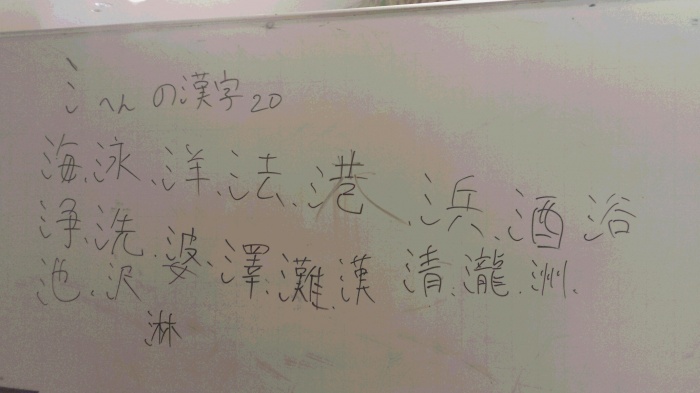 氵へんの漢字20
海、泳、洋、法、港、浜、酒、浴
浄、洗、婆、澤、灘、漢 清、瀧、洲、
池、沢
淋